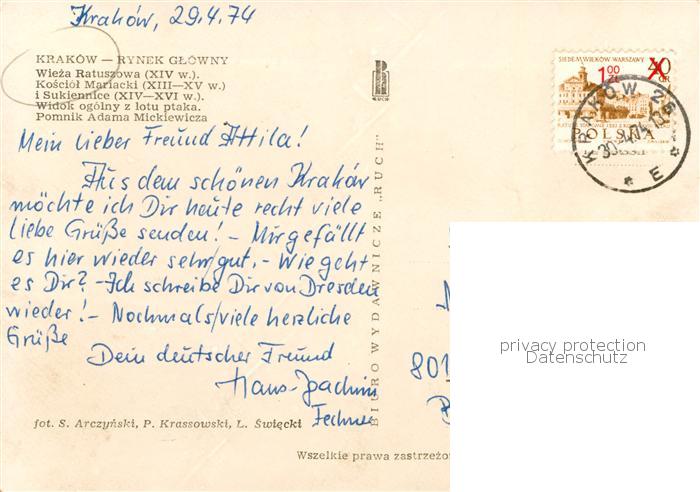 Kraków, 29.4.74
KRAKÓW — RYNEK GŁÓWNY
Wieża Ratuszowa (XIV w.).
Kościół Mariacki (XIII—XV w.)
i Sukiennice (XIV—XVI w.).
Widok ogólny z lotu ptaka.
Pomnik Adama Mickiewicza
RUCH
SIEDEM WIEKÓW WARSZAWY
1,00 ZŁ
40 GR
POLSKA
KRAKÓW 26
E
Mein lieber Freund Attila!
Aus dem schönen Kraków
möchte ich Dir heute recht viele
liebe Grüße senden! – Mir gefällt
es hier wieder sehr gut. – Wie geht
es Dir? – Ich schreibe Dir von Dresden
wieder! – Nochmals viele herzliche
Grüße
Dein deutscher Freund
Hans-Joachim
BIURO WYDAWNICZE „RUCH"
801
privacy protection
Datenschutz
fot. S. Arczyński, P. Krassowski, L. Święcki
Wszelkie prawa zastrzeżo